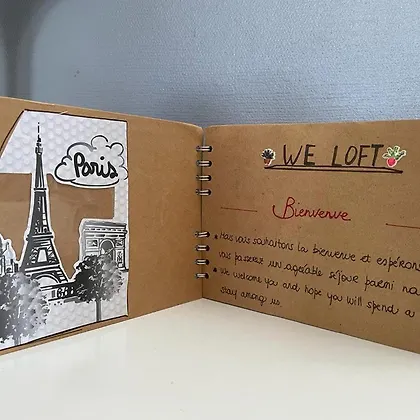 Paris
WE LOFT
Bienvenue
Nous vous souhaitons la bienvenue et espérons
vous passerez un agréable séjour parmi
We welcome you and hope you will spend a
stay among us.